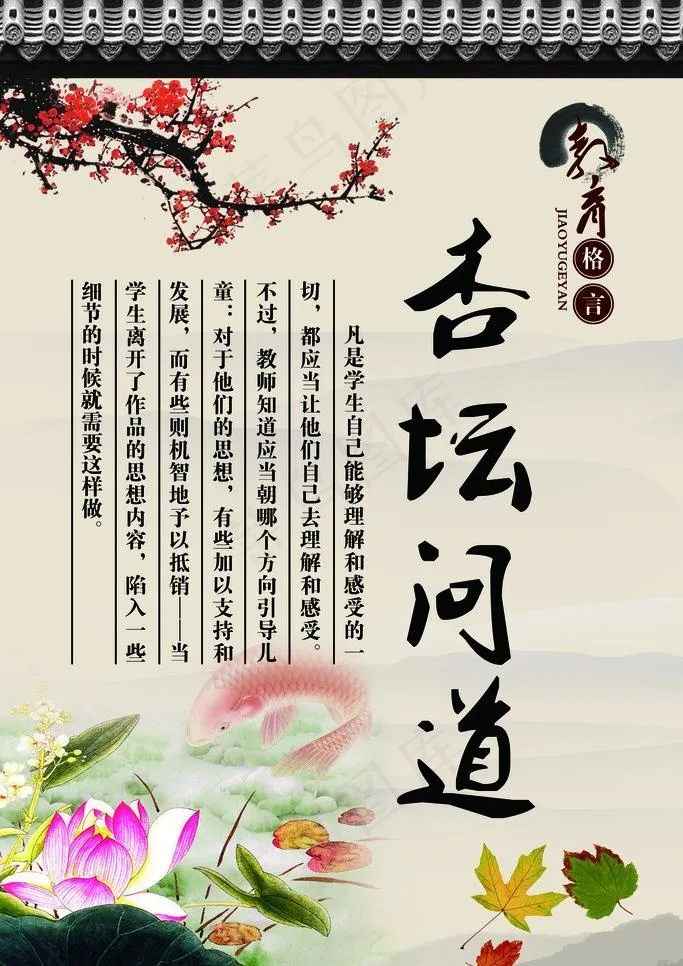 教育
格言
JIAOYUGEYAN
杏坛问道
凡是学生自己能够理解和感受的一
切，都应当让他们自己去理解和感受。
不过，教师知道应当朝哪个方向引导儿
童：对于他们的思想，有些加以支持和
发展，而有些则机智地予以抵销——当
学生离开了作品的思想内容，陷入一些
细节的时候就需要这样做。